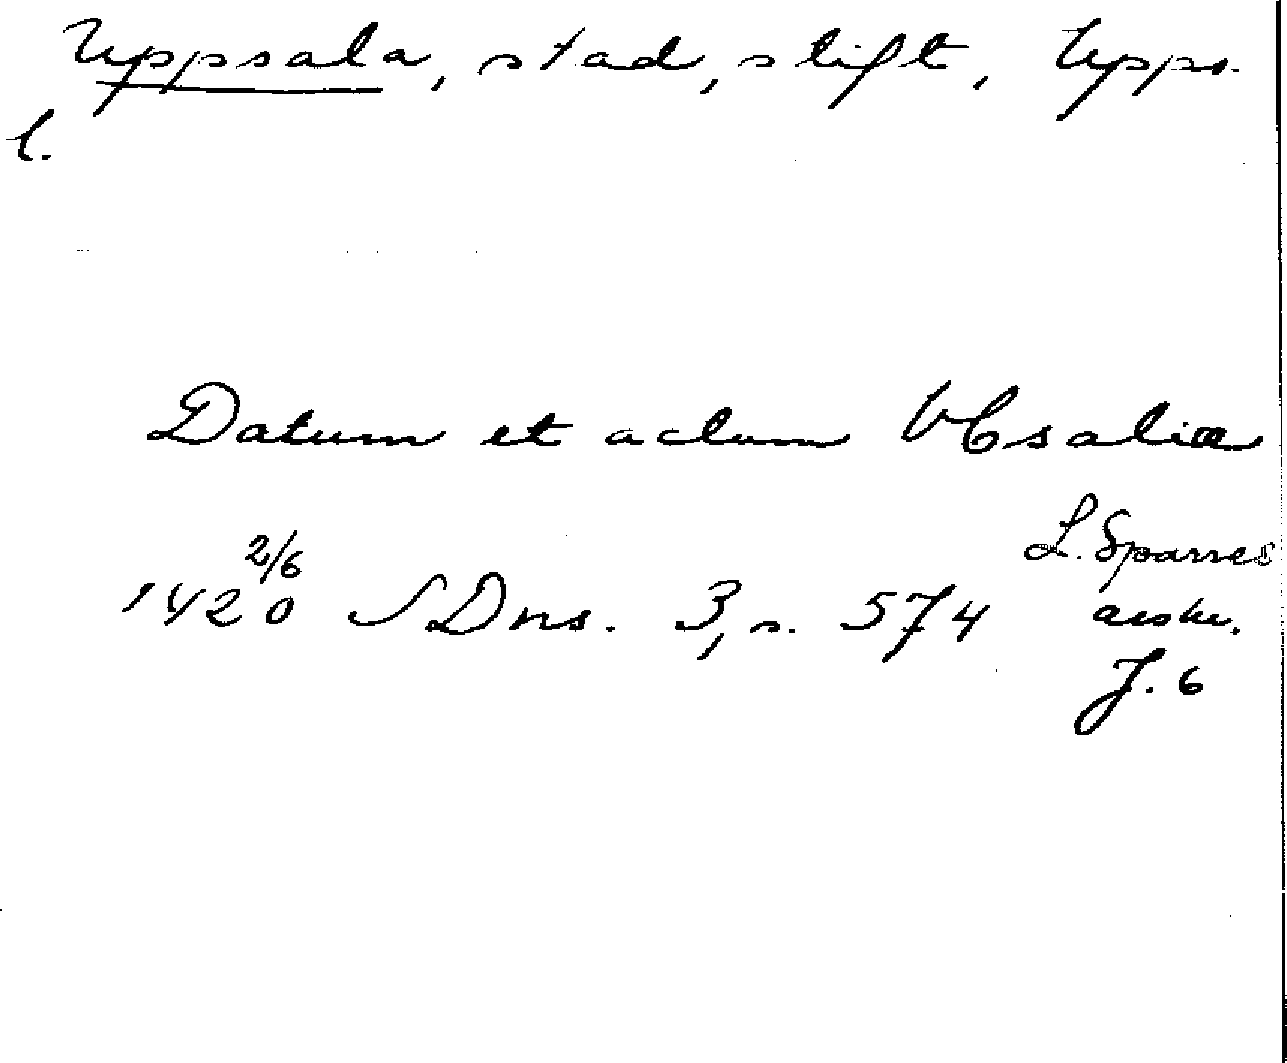 Uppsala, stad, stift, Upps.
l.
Datum et actum Vbsaliæ
1420 2/6 SDns. 3, s. 574 L. Sparres
avskr.
J. 6